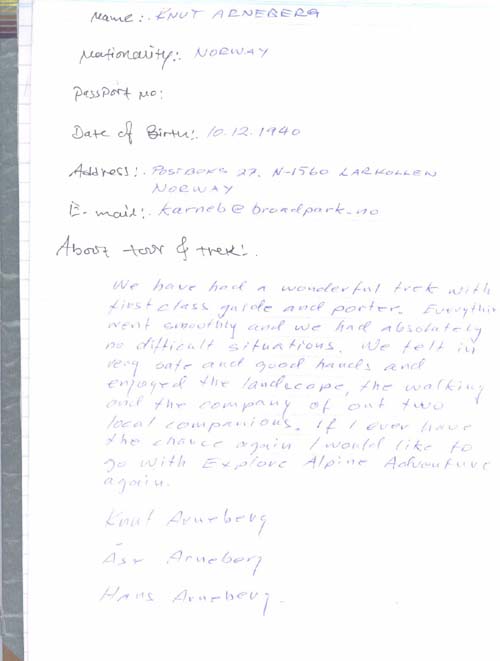 Name:. KNUT ARNEBERG
Nationality:. NORWAY
Passport No:
Date of Birth:. 10.12.1940
Address:. POSTBOKS 27, N-1560 LARKOLLEN
NORWAY
E-mail:. karneb@broadpark.no
About tour & trek:.
We have had a wonderful trek with
first class guide and porter. Everythin
went smoothly and we had absolutely
no difficult situations. We felt in
very safe and good hands and
enjoyed the landscape, the walking
and the company of our two
local companions. If I ever have
the chance again I would like to
go with Explore Alpine Adventure
again.
Knut Arneberg
Arneberg
Hans Arneberg.